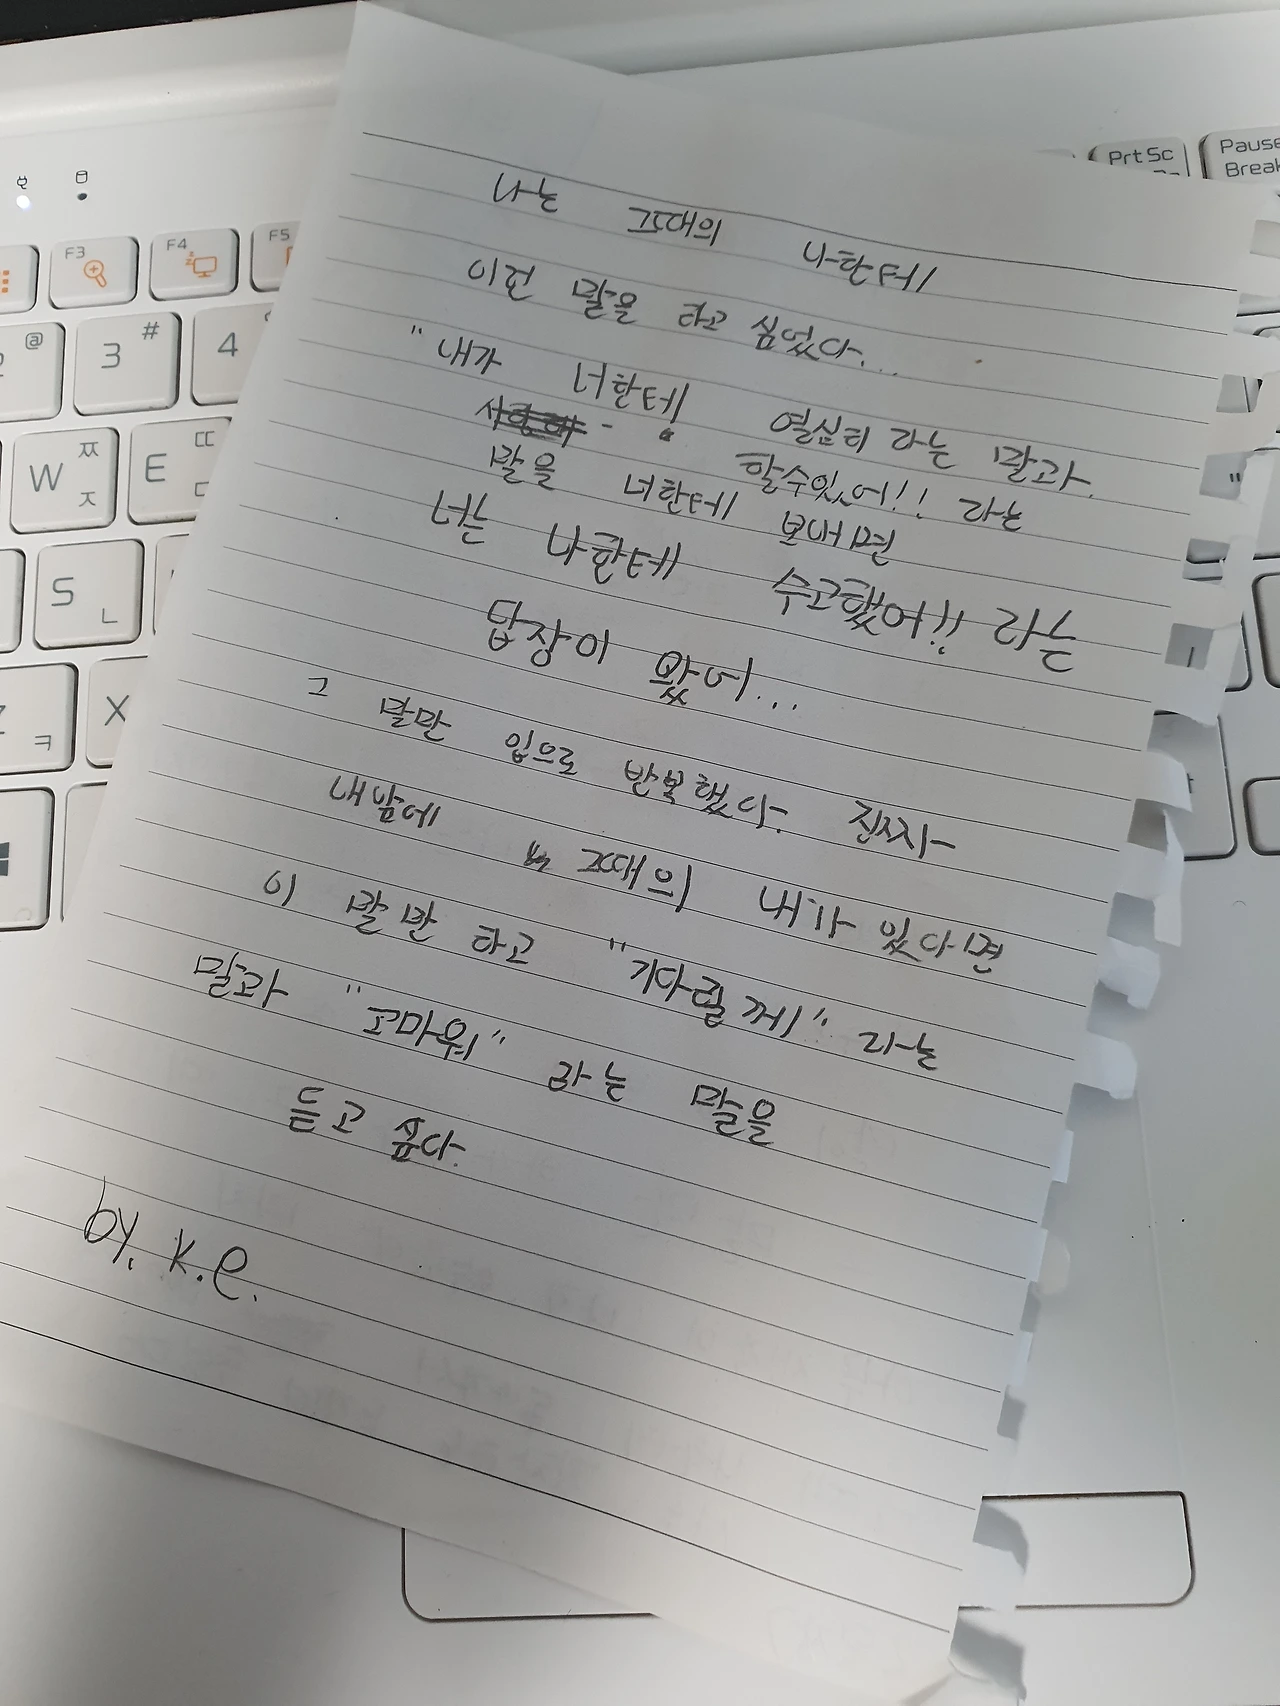 나는 그때의 나한테
이런 말을 하고 싶었다...
"내가 너한테 열심히 라는 말과
할수있어!! 라는 "
말을 너한테 보내면
너는 나한테 수고했어!! 라는
답장이 왔어...
그 말만 입으로 반복했다. 진짜
내앞에 그때의 내가 있다면
이 말만 하고 "기다릴께" 라는
말과 "고마워" 라는 말을
듣고 싶다.
by. K.e.
F3
F4
F5
Prt Sc
Pause
Break
@
3 #
4
W ㅉ ㅈ
E ㄸ ㄷ
S ㄴ
X
ㅋ